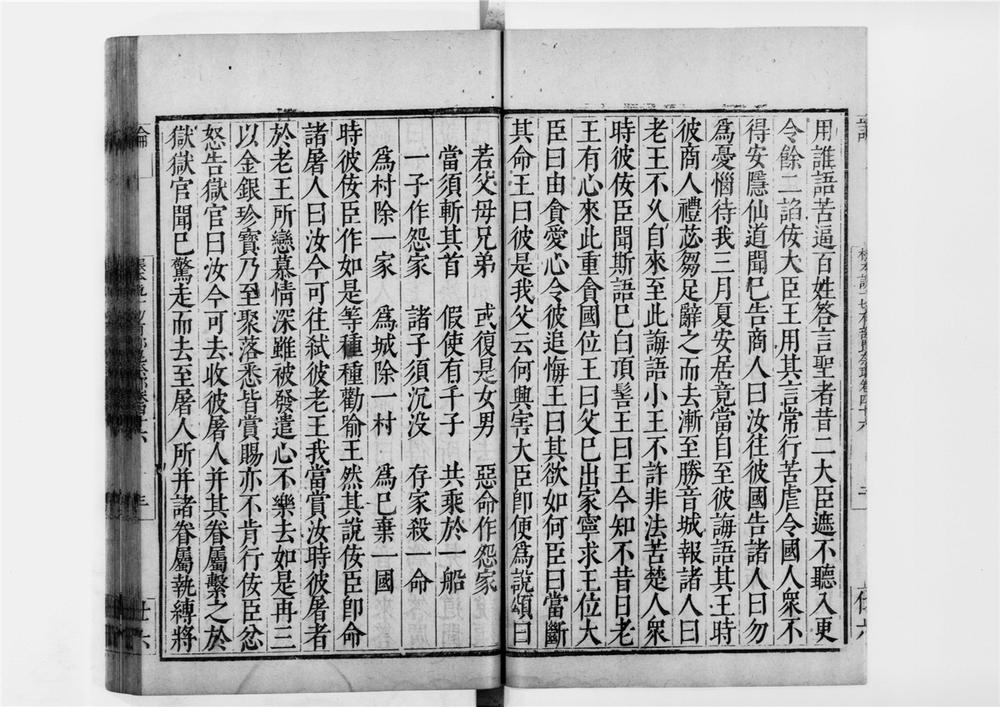 用誰語苦逼百姓答言聖者昔二大臣遮不聽入更
令餘二諂佞大臣王用其言常行苦虐令國人衆不
得安隱仙道聞巳告商人曰汝往彼國告諸人曰勿
爲憂惱待我三月夏安居竟當自至彼誨語其王時
彼商人禮苾芻足辭之而去漸至勝音城報諸人曰
老王不久自來至此誨語小王不許非法苦楚人衆
時彼佞臣聞斯語巳白頂髻王曰王今知不昔日老
王有心來此重貪國位王曰父巳出家寧求王位大
臣曰由貪愛心令彼追悔王曰其欲如何臣曰當斷
其命王曰彼是我父云何興害大臣卽便爲說頌曰
若父母兄弟 或復是女男 惡命作怨家
當須斬其首 假使有千子 共乘於一船
一子作怨家 諸子須沉沒 存家殺一命
爲村除一家 爲城除一村 爲巳棄一國
時彼佞臣作如是等種種勸喻王然其說佞臣卽命
諸屠人曰汝今可往弑彼老王我當賞汝時彼屠者
於老王所戀慕情深雖被發遣心不樂去如是再三
以金銀珍寶乃至聚落悉皆賞賜亦不肯行佞臣忿
怒告獄官曰汝今可去收彼屠人并其眷屬繫之於
獄獄官聞巳驚走而去至屠人所并諸眷屬執縛將
論